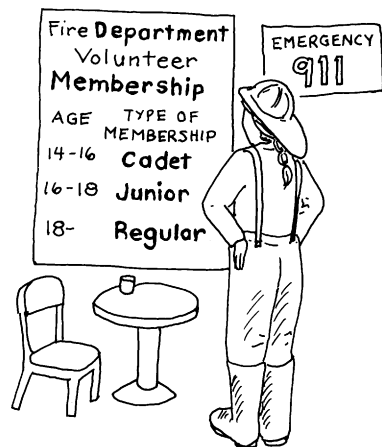 Fire Department
Volunteer
Membership
AGE TYPE OF
MEMBERSHIP
14-16 Cadet
16-18 Junior
18- Regular
EMERGENCY
911